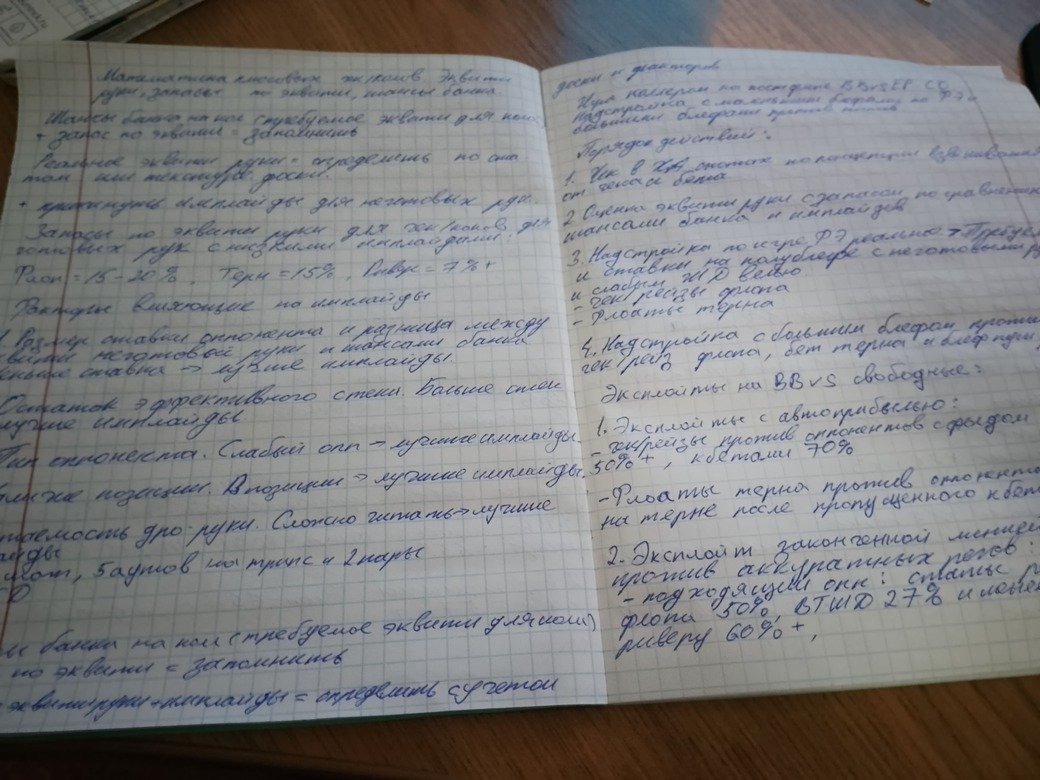 Математика плюсовых чк/колов. Эквити
руки, запасы по эквити, шансы банка.
Шансы банка на кол (требуемое эквити для кола)
+ запас по эквити = запомнить
Реальное эквити руки = определить по ста-
там или текстуре доски.
+ прикинуть имплайды для неготовых рук.
Запасы по эквити руки для чек/колов для
готовых рук с низкими имплайдами:
Флоп = 15-20%, Терн = 15%, Ривер = 7%+
Факторы влияющие на имплайды
1. Размер ставки оппонента и разница между
неготовой руки и шансами банка
ставка → лучше имплайды.
Остаток эффективного стека. Больше стек
лучше имплайды
Тип оппонента. Слабый опп → лучше имплайды.
позиции. В позиции → лучше имплайды.
дро-руки. Сложно читать → лучше
5 аутов на трипс и 2 пары
банка на кол (требуемое эквити для кола)
по эквити = запомнить
эквити руки + имплайды = определить с учетом
доски и факторов
на постфлопе BBvsEP CO
Надстройка с маленьким блефом по ФЭ и
большими блефами против
Порядок действий:
1. Чек в споте на
от чека и бета
2. Оценка эквити руки с запасом по сравнению
шансами банка и имплайдов
3. Надстройка по игре. ФЭ реальное >
и ставки на полублефе с неготовыми
и слабым ШД велью
- чек/рейзы флопа
- Флоаты терна
4. Надстройка с большим блефом против
чек/рейз флопа, бет терна и блеф
Эксплойты на BBvS свободные:
1. Эксплойты с автоприбылью:
- чк/рейзы против оппонентов с фолдом
50%+, к бетами 70%
- Флоаты терна против оппонента
на терне после пропущенного к бет
2. Эксплойт законченной
против аккуратных регов:
- подходящий опп: статы
флопа 50%, ВТШД 27% и
риверу 60%+,